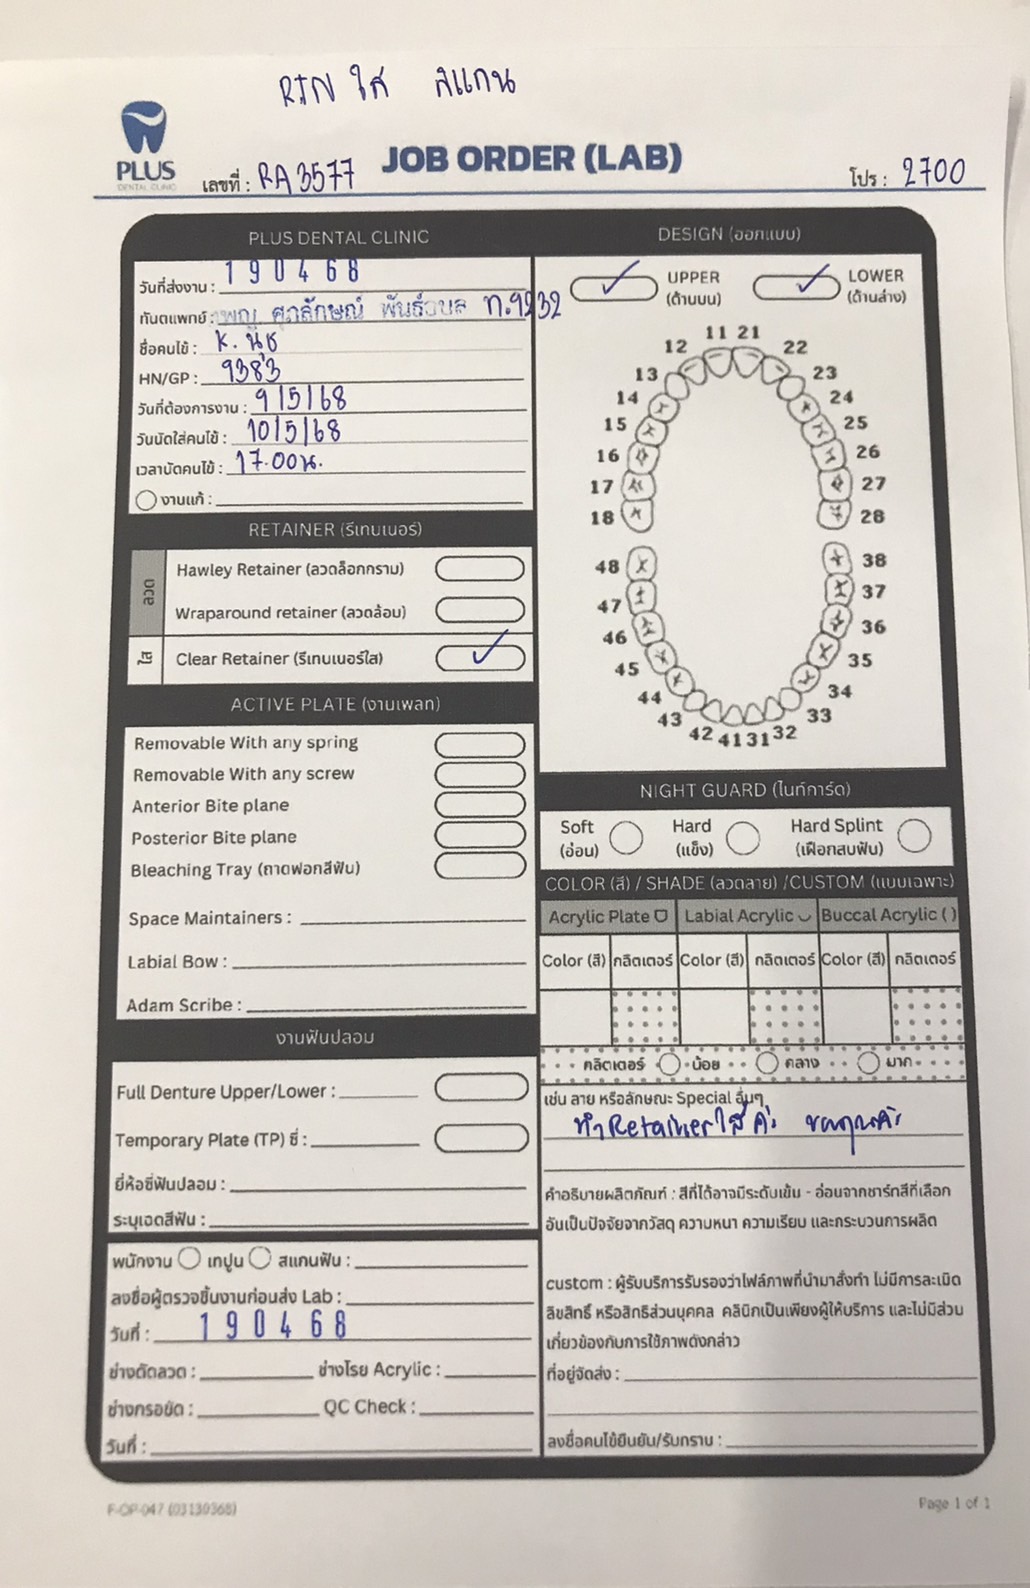 RTN ใส สแกน
PLUS
DENTAL CLINIC
เลขที่ : RA3577
JOB ORDER (LAB)
โปร : 2700
PLUS DENTAL CLINIC
วันที่ส่งงาน : 190468
ทันตแพทย์ : ศุภลักษณ์ ท.9232
ชื่อคนไข้ : K. นุช
HN/GP : 9383
วันที่ต้องการงาน : 9/5/68
วันนัดใส่คนไข้ : 10/5/68
เวลานัดคนไข้ : 17.00น.
งานแก้ :
RETAINER (รีเทนเนอร์)
ลวด
Hawley Retainer (ลวดล็อกกราม)
Wraparound retainer (ลวดล้อม)
ใส
Clear Retainer (รีเทนเนอร์ใส)
ACTIVE PLATE (งานเพลท)
Removable With any spring
Removable With any screw
Anterior Bite plane
Posterior Bite plane
Bleaching Tray (ถาดฟอกสีฟัน)
Space Maintainers :
Labial Bow :
Adam Scribe :
งานฟันปลอม
Full Denture Upper/Lower :
Temporary Plate (TP) ซี่ :
ยี่ห้อซี่ฟันปลอม :
ระบุเฉดสีฟัน :
พนักงาน เทปูน สแกนฟัน :
ลงชื่อผู้ตรวจชิ้นงานก่อนส่ง Lab :
วันที่ : 190468
ช่างดัดลวด : ช่างโรย Acrylic :
ช่างกรอขัด : QC Check :
วันที่ :
DESIGN (ออกแบบ)
UPPER
(ด้านบน)
LOWER
(ด้านล่าง)
11 21
12 22
13 23
14 24
15 25
16 26
17 27
18 28
48 38
47 37
46 36
45 35
44 34
43 33
42 41 31 32
NIGHT GUARD (ไนท์การ์ด)
Soft
(อ่อน)
Hard
(แข็ง)
Hard Splint
(เฝือกสบฟัน)
COLOR (สี) / SHADE (ลวดลาย) /CUSTOM (แบบเฉพาะ)
Acrylic Plate Labial Acrylic Buccal Acrylic ( )
Color (สี) กลิตเตอร์ Color (สี) กลิตเตอร์ Color (สี) กลิตเตอร์
กลิตเตอร์ น้อย กลาง มาก
เช่น ลาย หรือลักษณะ Special อื่นๆ
ทำ Retainer ใส ค่ะ ขอบคุณค่ะ
คำอธิบายผลิตภัณฑ์ : สีที่ได้อาจมีระดับเข้ม - อ่อนจากชาร์ทสีที่เลือก
อันเป็นปัจจัยจากวัสดุ ความหนา ความเรียบ และกระบวนการผลิต
custom : ผู้รับบริการรับรองว่าไฟล์ภาพที่นำมาสั่งทำ ไม่มีการละเมิด
ลิขสิทธิ์ หรือสิทธิส่วนบุคคล คลินิกเป็นเพียงผู้ให้บริการ และไม่มีส่วน
เกี่ยวข้องกับการใช้ภาพดังกล่าว
ที่อยู่จัดส่ง :
ลงชื่อคนไข้ยืนยัน/รับทราบ :
F-OP-047 (03130368)
Page 1 of 1